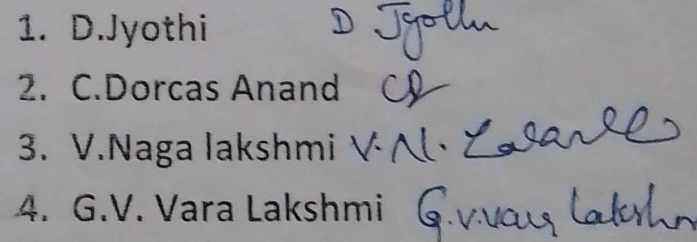 1. D.Jyothi D Jyothi
2. C.Dorcas Anand
3. V.Naga lakshmi V.N.
4. G.V. Vara Lakshmi G.V.Vara Lakshm